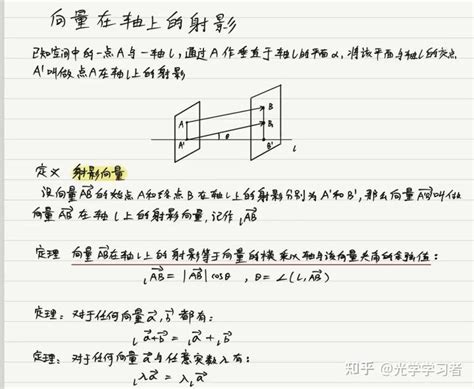 向量在轴上的射影
已知空间中的一点A与一轴l,通过A作垂直于轴l的平面α,将该平面与轴l的交点
A'叫做点A在轴l上的射影
A B
B₁
θ
A' B' l
定义 射影向量
设向量AB的始点A和终点B在轴l上的射影分别为A'和B',那么向量A'B'叫做
向量AB在轴l上的射影向量,记作 ₗAB
定理 向量AB在轴l上的射影等于向量的模乘以轴与该向量夹角的余弦值:
ₗAB = |AB|cosθ , θ = ∠(l,AB)
定理:对于任何向量a,b都有:
ₗa+b = ₗa + ₗb
定理:对于任何向量a与任意实数λ有:
ₗλa = λₗa
知乎 @光学学习者